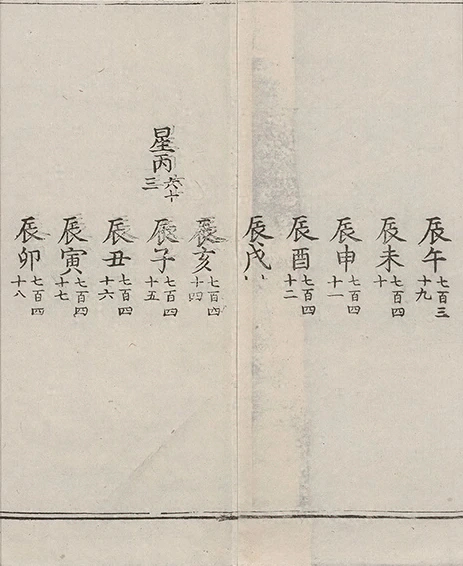 辰午七百三十九
辰未七百四十
辰申七百四十一
辰酉七百四十二
辰戌
辰亥七百四十四
星丙六十三
辰子七百四十五
辰丑七百四十六
辰寅七百四十七
辰卯七百四十八